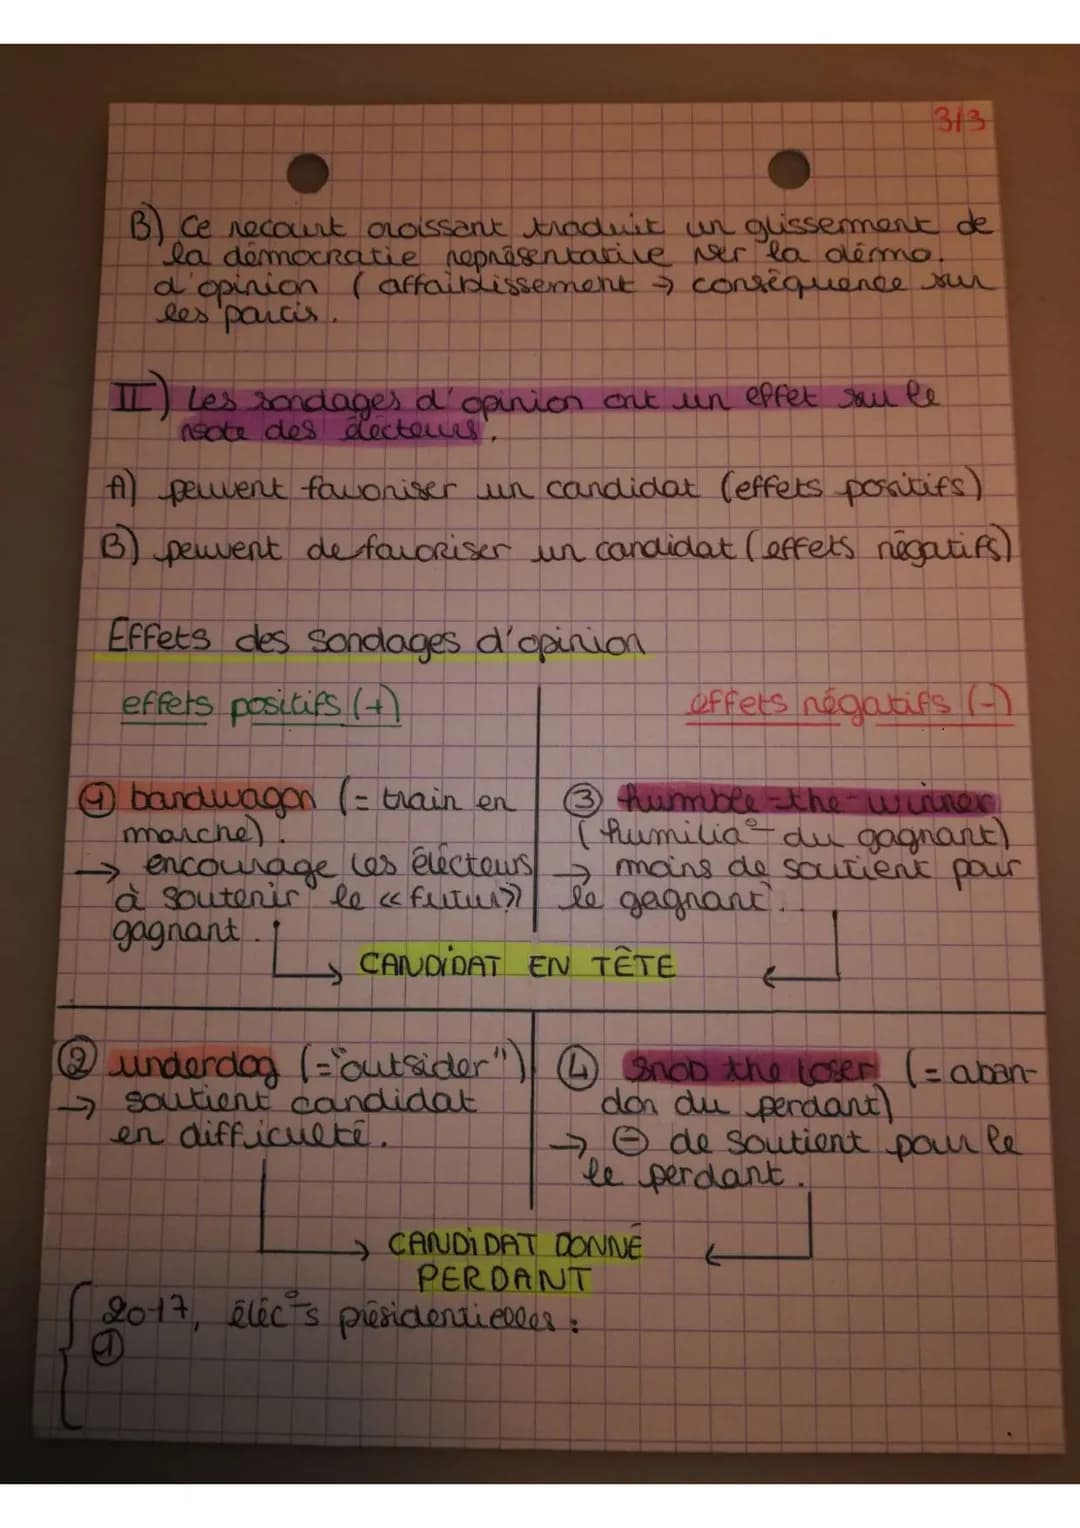 3/3
B) Ce recourt croissant traduit un glissement de
la démocratie représentative ver la démo.
d'opinion (affaiblissement → conséquence sur
les parcis.
II) Les sondages d'opinion ont un effet sur le
vote des électeurs.
A) peuvent favoriser un candidat (effets positifs)
B) peuvent defavoriser un candidat (effets négatifs)
Effets des sondages d'opinion
effets positifs (+)
effets négatifs (-)
① bandwagon (= train en
marche).
→ encourage les électeurs
à soutenir le «futur»
gagnant.
③ humble-the-winner
(humilia° du gagnant)
→ moins de soutient pour
le gagnant.
→ CANDIDAT EN TÊTE ←
② underdog (="outsider")
→ soutient candidat
en difficulté.
④ Snob the loser (= aban-
don du perdant)
→ ⊖ de soutient pour le
le perdant.
→ CANDIDAT DONNÉ ←
PERDANT
2017, éléc°s présidentielles :
①